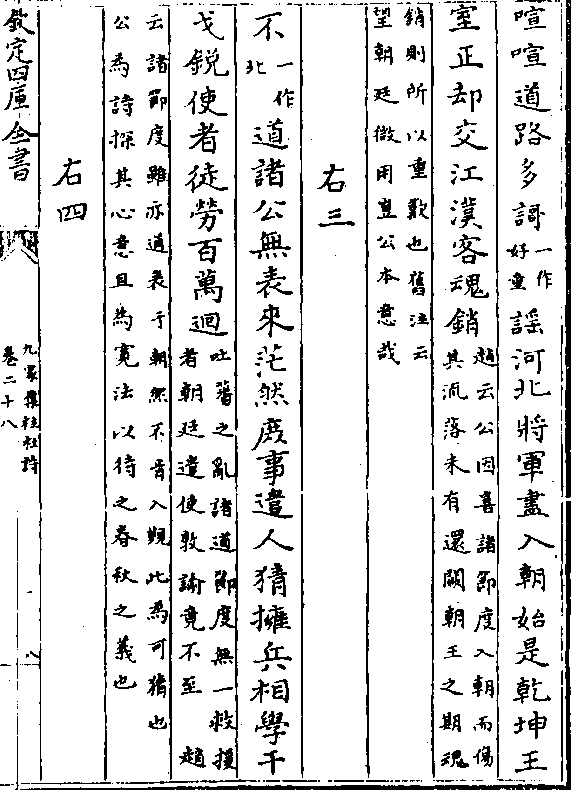 喧喧道路多謌一作好童謡河北將軍盡入朝始是乾坤王
室正却交江漢客魂銷趙云公因喜諸節度入朝而傷
其流落未有還闕朝王之期魂
銷則所以重歎也舊注云
望朝廷徵用豈公本意哉
右三
不一作北道諸公無表來茫然庶事遣人猜擁兵相學干
戈鋭使者徒勞百萬迴吐蕃之亂諸道節度無一救援
者朝廷遣使敦諭竟不至 趙
云諸節度雖亦通表于朝然不肯入覲此為可猜也
公為詩探其心意且為寛法以待之春秋之義也
右四
欽定四庫全書
九家集註杜詩
卷二十八
八